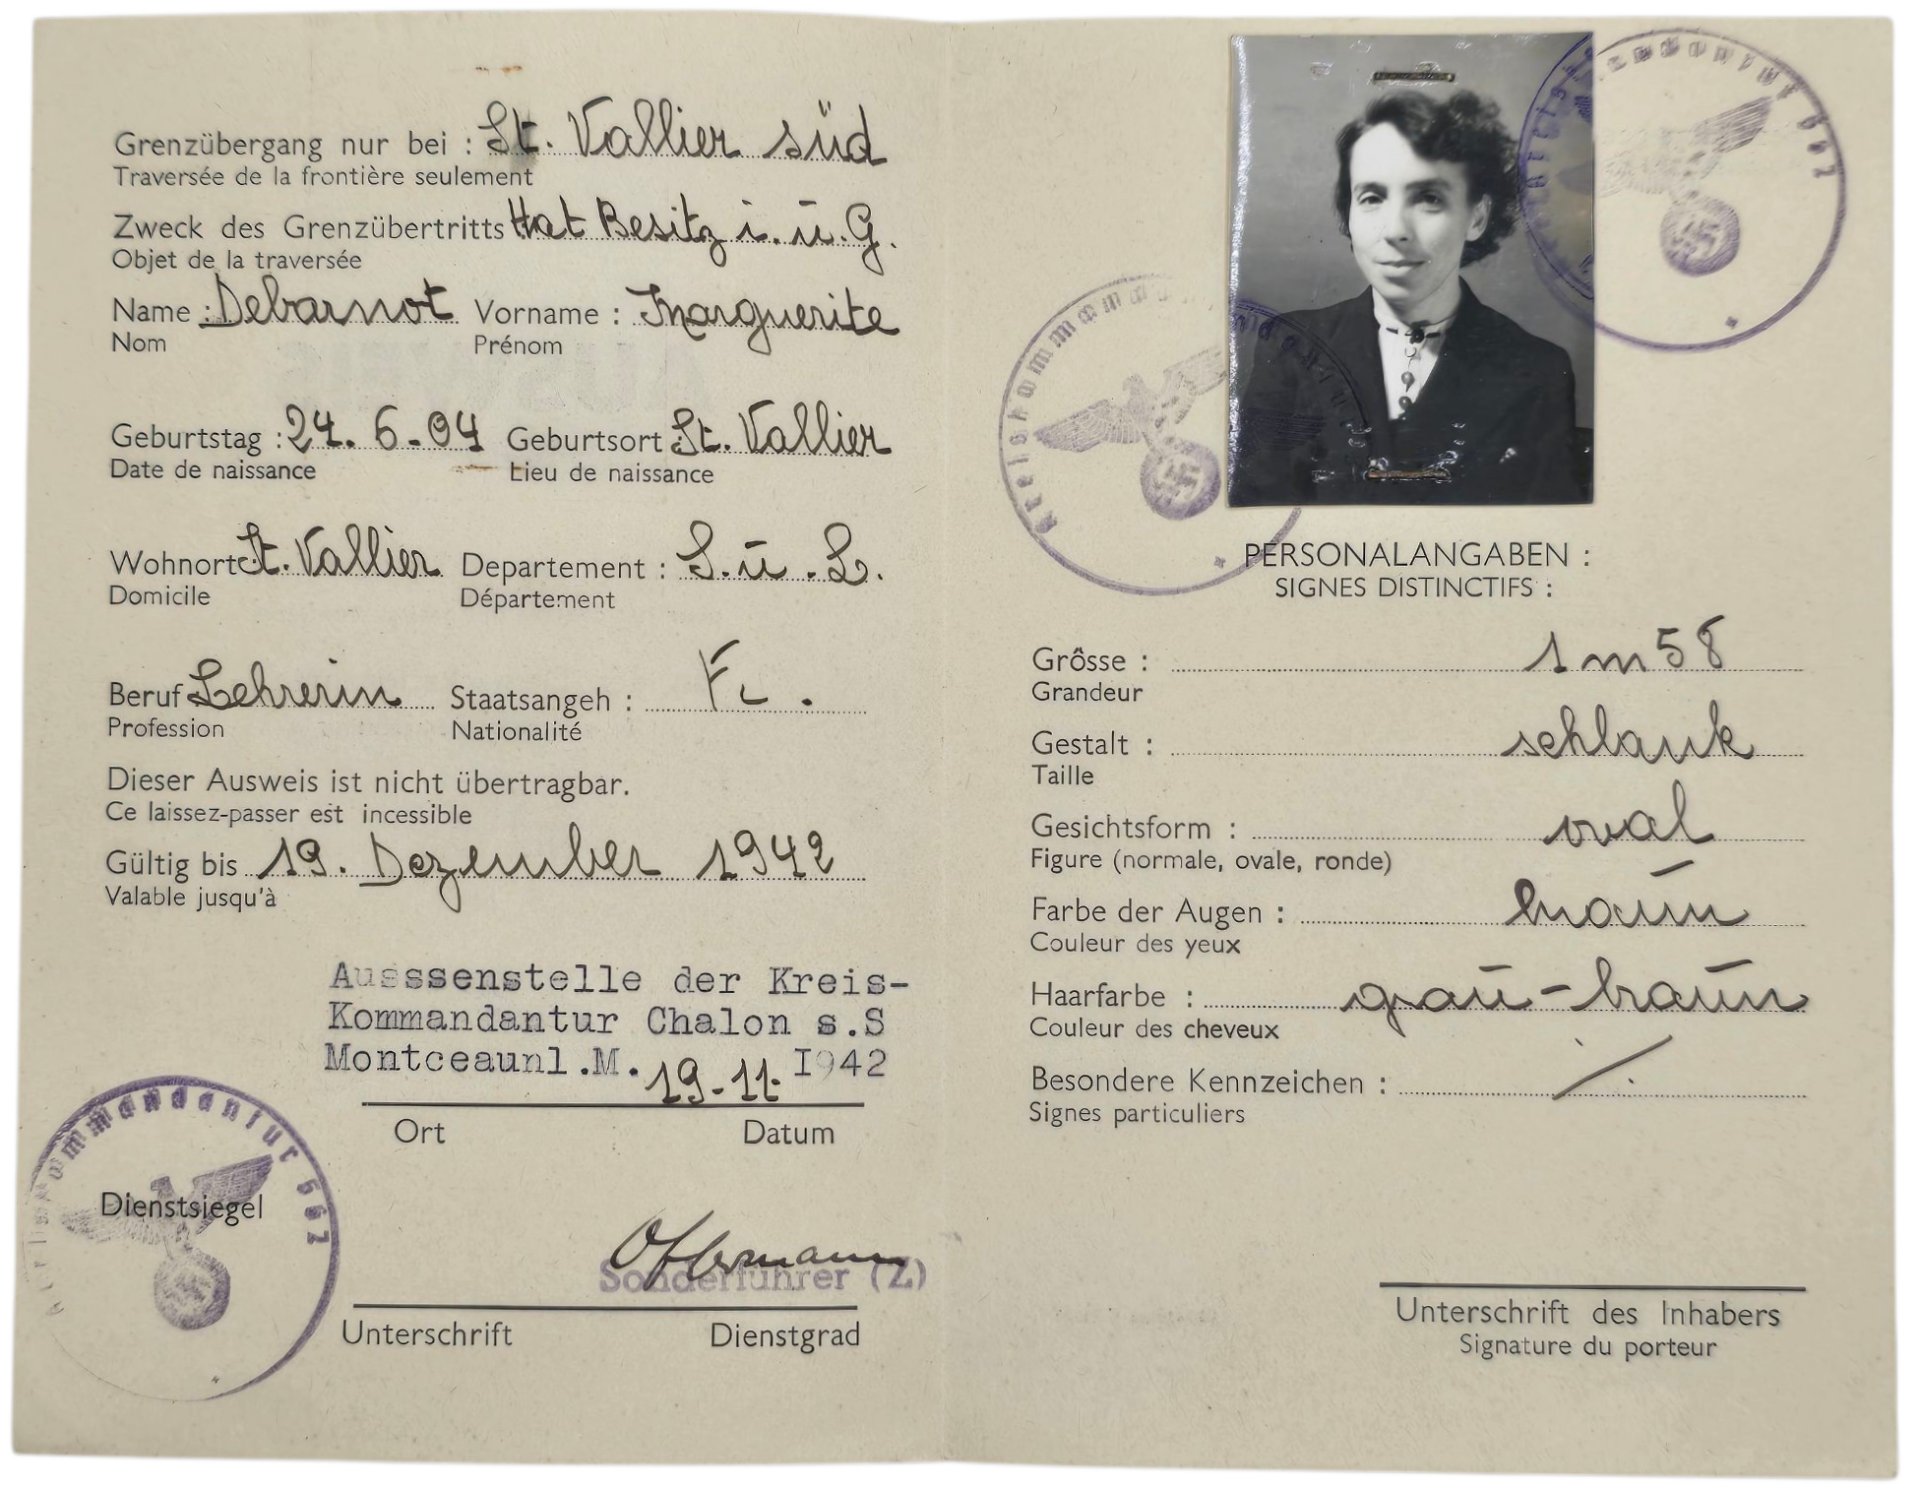 Grenzübergang nur bei : St. Vallier süd
Traversée de la frontière seulement
Zweck des Grenzübertritts Hat Besitz i. u. G.
Objet de la traversée
Name : Debarnot Vorname : Marguerite
Nom Prénom
Geburtstag : 24. 6. 04 Geburtsort St. Vallier
Date de naissance Lieu de naissance
Wohnort St. Vallier Departement : S. u. L.
Domicile Département
Beruf Lehrerin Staatsangeh : Fr.
Profession Nationalité
Dieser Ausweis ist nicht übertragbar.
Ce laissez-passer est incessible
Gültig bis 19. Dezember 1942
Valable jusqu'à
Ausssenstelle der Kreis-
Kommandantur Chalon s.S
Montceaunl.M. 19-11- I942
Ort Datum
Kreiskommandantur 667
Dienstsiegel
Sonderführer (Z)
Unterschrift Dienstgrad
Kreiskommandantur 667
Kreiskommandantur
PERSONALANGABEN :
SIGNES DISTINCTIFS :
Grösse : 1m58
Grandeur
Gestalt : schlank
Taille
Gesichtsform : oval
Figure (normale, ovale, ronde)
Farbe der Augen : braun
Couleur des yeux
Haarfarbe : grau-braun
Couleur des cheveux
Besondere Kennzeichen : ./.
Signes particuliers
Unterschrift des Inhabers
Signature du porteur